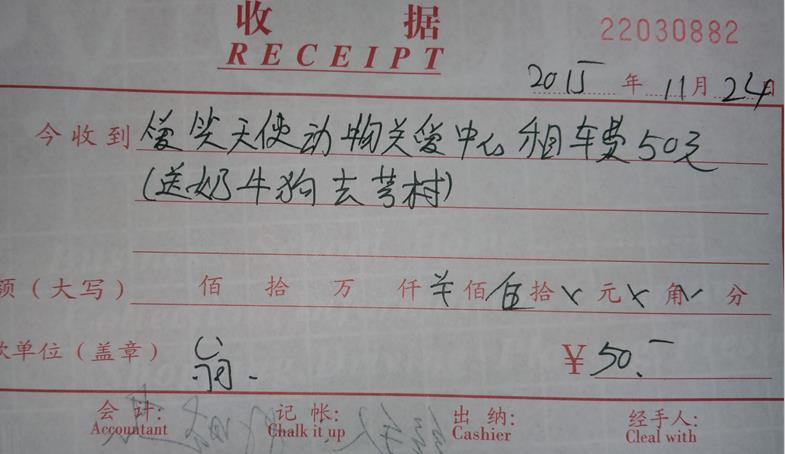 收据
22030882
RECEIPT
2015年11月24日
今收到 爱笑天使动物关爱中心租车费50元
(送奶牛狗去芳村)
额(大写) 佰 拾 万 仟 佰伍拾 元 角 分
款单位(盖章) ¥50.-
会计: 记帐: 出纳: 经手人:
Accountant Chalk it up Cashier Cleal with